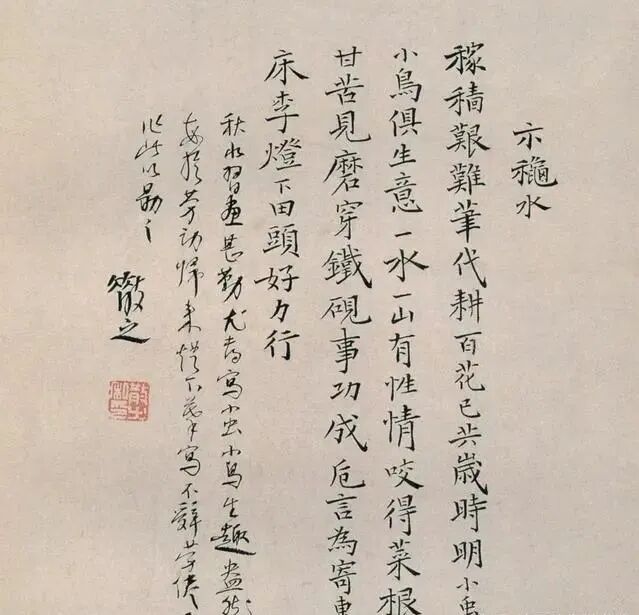 示穐水
稼穡艱難筆代耕百花已共歲時明小虫
小鳥俱生意一水一山有性情咬得菜根
甘苦見磨穿鐵硯事功成卮言為寄東
床李燈下田頭好力行
秋水習畫甚勤尤喜寫小虫小鳥生趣盎然
每於勞動歸來燈下寫不辭勞倦
作此以勗之
之